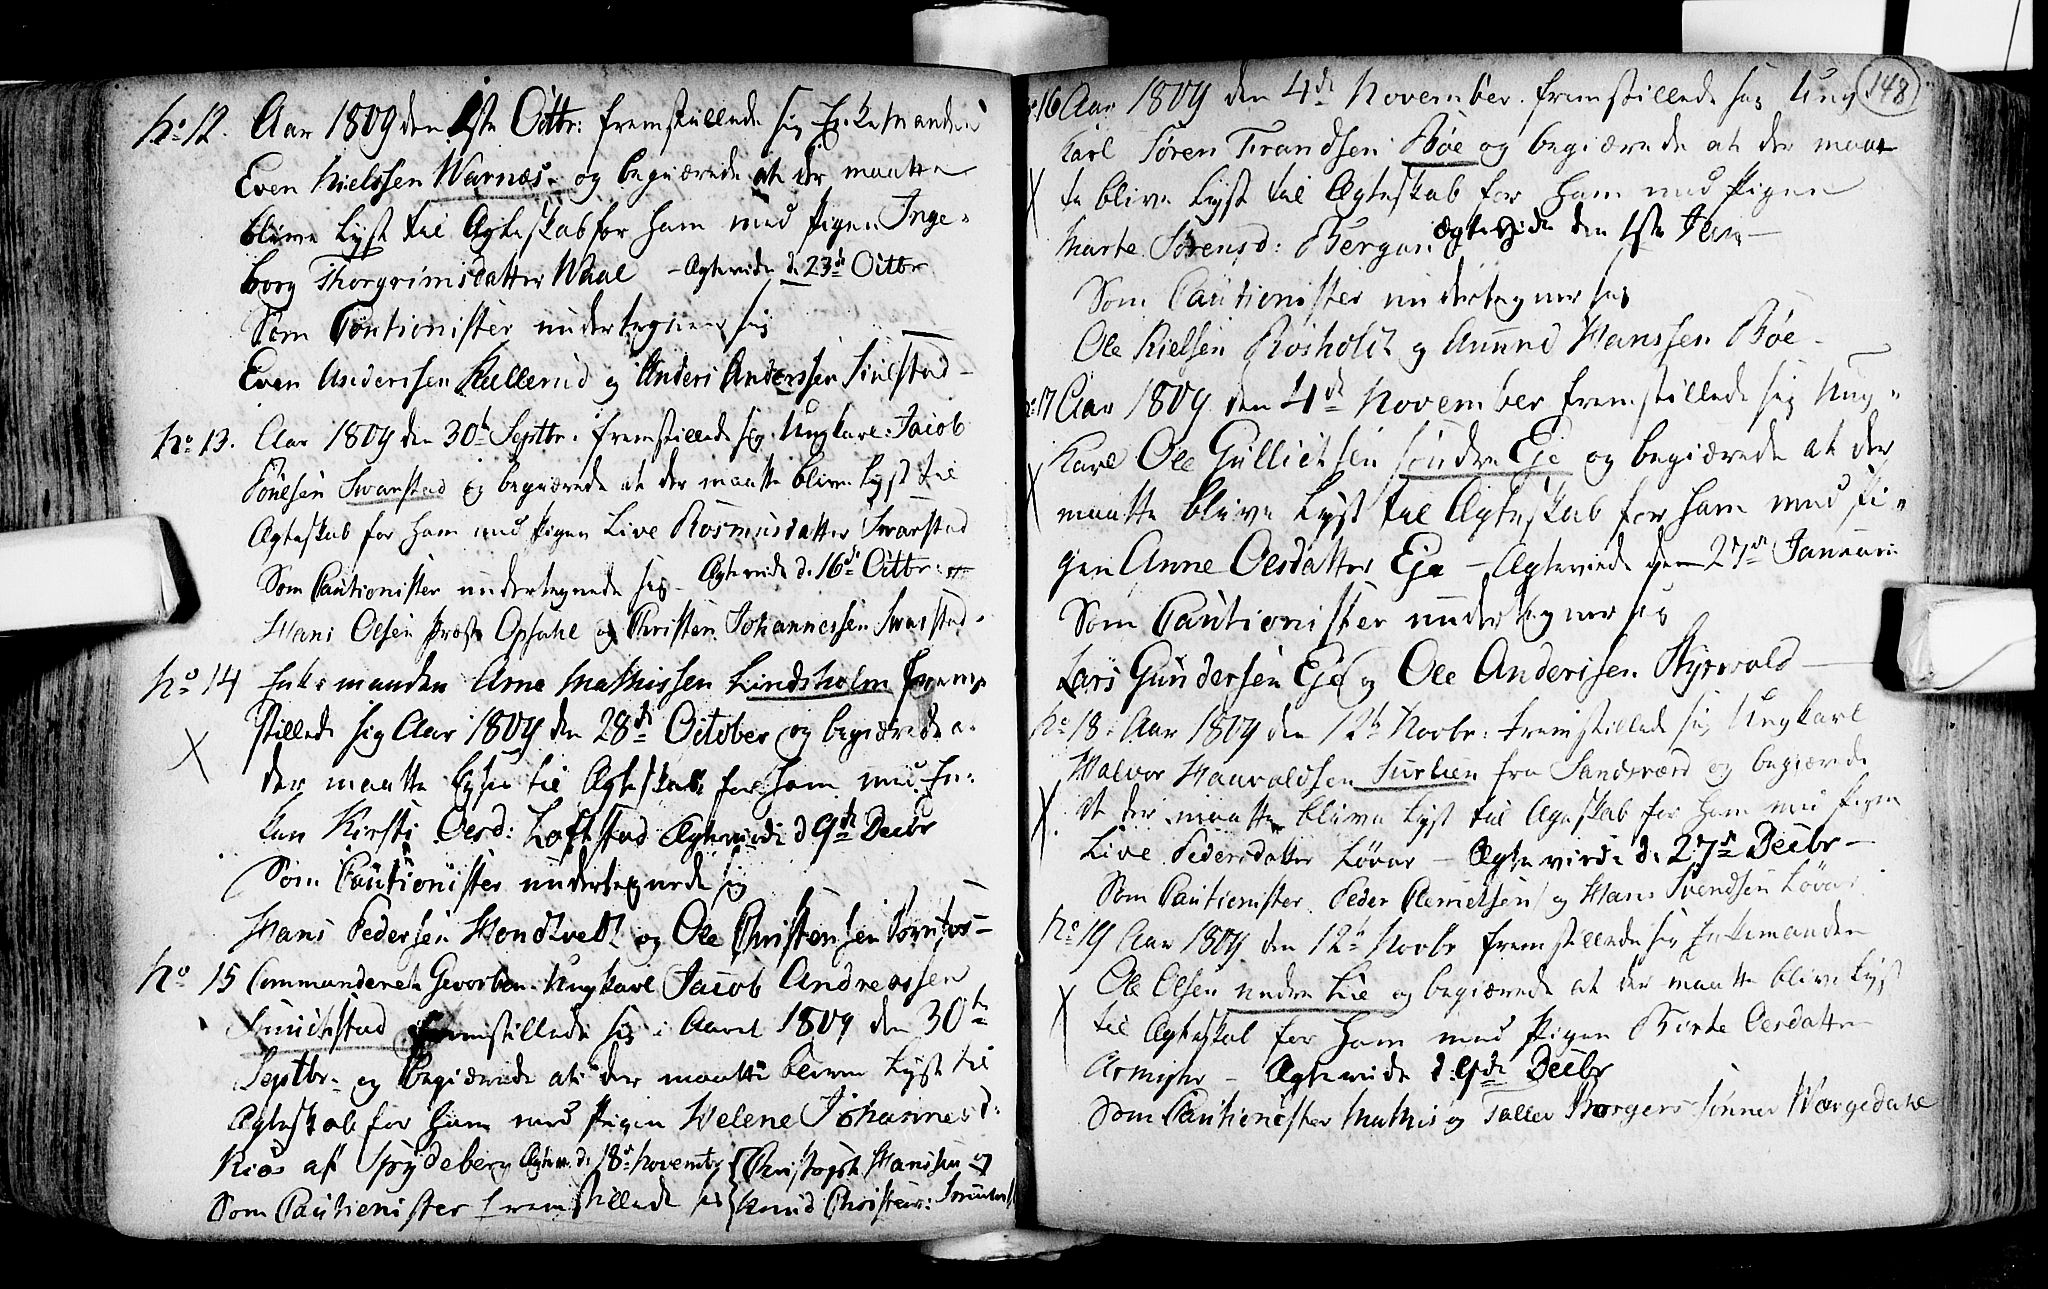 No 12. Aar 1809 den 1ste Octbr: fremstillede sig Enkemanden
Even Nielssen Warnæs og begiærede at der maatte
blive lyst til Ægteskab for ham med Pigen Inge-
borg Thorgrimsdatter Waal - Ægteviede d. 23de Octbr
Som Cautionister undertegner sig
Even Anderssen Kullerud og Anders Anderssen
No 13. Aar 1809 den 30te Septbr. fremstillede sig Ungkarl: Jacob
Poulsen Swarstad og begiærede at der maatte blive lyst til
Ægteskab for ham med Pigen Live Rasmusdatter Swarstad
Som Cautionister undertegnede sig - Ægteviede d. 16de Octbr:
Hans Olsen Opsahl og Christen Johannessen Swarstad.
No 14 Enkemanden Arne Mathissen Lindsholm frem-
stillede sig Aar 1809 den 28de October og begiærede a.
der maatte lyses til Ægteskab for ham med En-
kken Kirsti Olesd: Loftstad Ægteviede d 9de Decbr
Som Cautionister undertegnede sig
Hans Pedersen og Ole Christensen
No 15 Commanderet Ungkarl Jacob Andreassen
fremstillede sig i Aaret 1809 den 30te
Septbr. og begiærede at der maatte blive lyst til
Ægteskab for ham med Pigen Helene Johannesd:
Kiøs af Spydeberg Ægtev. d. 18de Novembr { Christoph. Hanssen og
Som Cautionister fremstillede sig { Knud Christens:
148
No 16 Aar 1809 den 4de November fremstillede sig Ung
karl Søren Frandsen Bøe og begiærede at der maat
te blive lyst til Ægteskab for ham med Pigen
Marte Sørensd: Bergan Ægteviede den 1ste Jan -
Som Cautionister undertegner sig
Ole Nielsen Rosholdt og Amund Hanssen Bøe -
No 17 Aar 1809 den 4de November fremstillede sig Ung-
karl Ole Gullichsen søndre Eje og begiærede at der
maatte blive lyst til Ægteskab for ham med Pi-
gen Anne Olesdatter Eje - Ægteviede den 27de Januari
Som Cautionister undertegner sig
Lars Gundersen Eje og Ole Anderssen Skyrvold -
No 18. Aar 1809 den 12te Novbr: fremstillede sig Ungkarl
Halvor Haavaldsen fra Sandsværd og begiærede
at der maatte blive lyst til Ægteskab for ham med Pigen
Live Pedersdatter Løvar - Ægteviede d. 27de Decbr -
Som Cautionister Peder Clemetsen og Hans Svendsen Løvar
No 19 Aar 1809 den 12te Novbr fremstillede sig Enkemanden
Ole Olsen nedre Lie og begiærede at der maatte blive lyst
til Ægteskab for ham med Pigen Birte Olesdatter
- Ægteviede d. 9de Decbr
Som Cautionister Mathis og Tallev Borgers sønner Wærgedahl